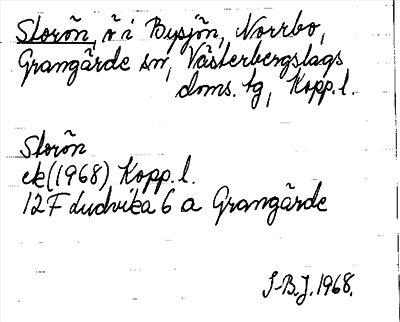 Storön, ö i Bysjön, Norrbo,
Grangärde sn, Västerbergslags
doms. tg, Kopp. l.
Storön
ek (1968) Kopp. l.
12F Ludvika 6 a Grangärde
S-B.J. 1968.